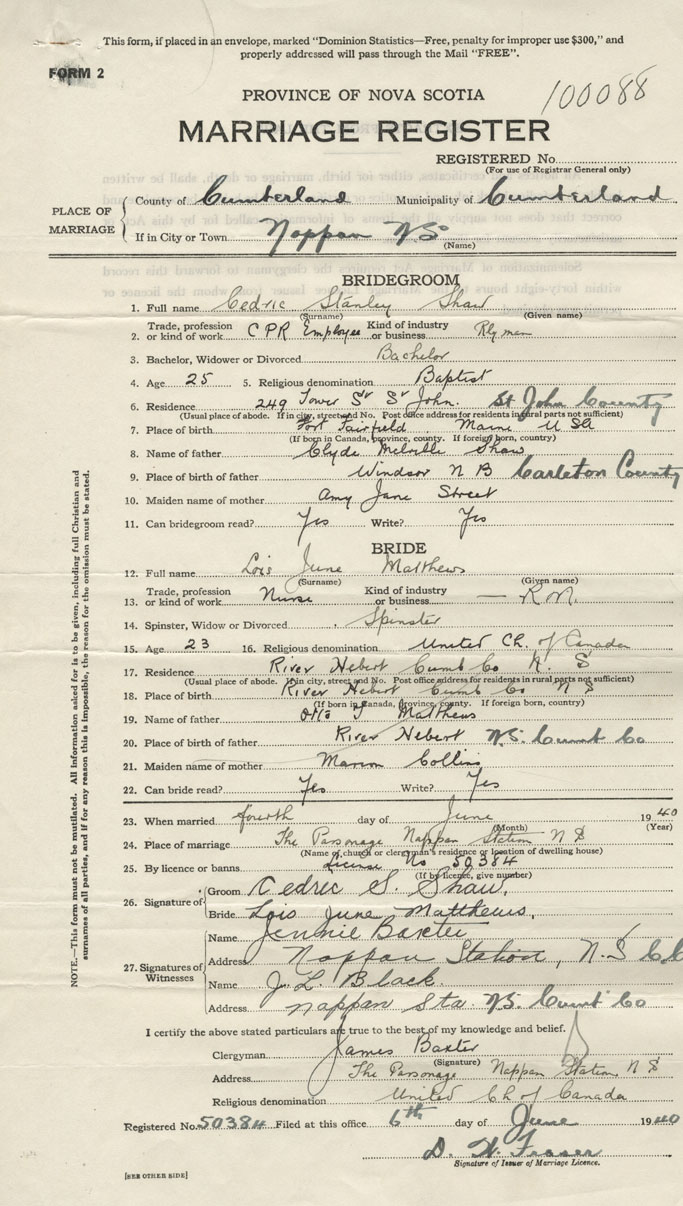 This form, if placed in an envelope, marked "Dominion Statistics—Free, penalty for improper use $300," and
properly addressed will pass through the Mail "FREE".
FORM 2
100088
PROVINCE OF NOVA SCOTIA
MARRIAGE REGISTER
REGISTERED No.
(For use of Registrar General only)
PLACE OF MARRIAGE
County of Cumberland Municipality of Cumberland
If in City or Town Nappan NS
(Name)
BRIDEGROOM
1. Full name Cedric Stanley Shaw
(Surname) (Given name)
2. Trade, profession or kind of work CPR Employee Kind of industry or business Rlyman
3. Bachelor, Widower or Divorced Bachelor
4. Age 25 5. Religious denomination Baptist
6. Residence 249 Tower St St John. St John County
(Usual place of abode. If in city, street and No. Post office address for residents in rural parts not sufficient)
7. Place of birth Fort Fairfield, Maine USA
(If born in Canada, province, county. If foreign born, country)
8. Name of father Clyde Melville Shaw
9. Place of birth of father Windsor N B Carleton County
10. Maiden name of mother Amy Jane Street
11. Can bridegroom read? Yes Write? Yes
BRIDE
12. Full name Lois June Matthews
(Surname) (Given name)
13. Trade, profession or kind of work Nurse Kind of industry or business — R.N.
14. Spinster, Widow or Divorced Spinster
15. Age 23 16. Religious denomination United Ch. of Canada
17. Residence River Hebert Cumb Co N. S
(Usual place of abode. If in city, street and No. Post office address for residents in rural parts not sufficient)
18. Place of birth River Hebert Cumb Co N S
(If born in Canada, province, county. If foreign born, country)
19. Name of father Otto J Matthews
20. Place of birth of father River Hebert N.S. Cumb Co
21. Maiden name of mother Marion Collins
22. Can bride read? Yes Write? Yes
23. When married fourth day of June 1940
(Month) (Year)
24. Place of marriage The Parsonage Nappan Station N S
(Name of church or clergyman's residence or location of dwelling house)
25. By licence or banns License No 50384
(If by licence, give number)
26. Signature of
Groom Cedric S. Shaw.
Bride Lois June Matthews.
27. Signatures of Witnesses
Name Jennie Baxter
Address Nappan Station, N.S
Name J. L. Black.
Address Nappan Sta. N.S. Cumb Co
I certify the above stated particulars are true to the best of my knowledge and belief.
Clergyman James Baxter
(Signature)
Address The Parsonage Nappan Station, N S
Religious denomination United Ch of Canada
Registered No. 50384 Filed at this office 6th day of June 1940
D. W. Fraser
Signature of Issuer of Marriage Licence.
[SEE OTHER SIDE]
NOTE.—This form must not be mutilated. All information asked for is to be given, including full Christian and
surnames of all parties, and if for any reason this is impossible, the reason for the omission must be stated.